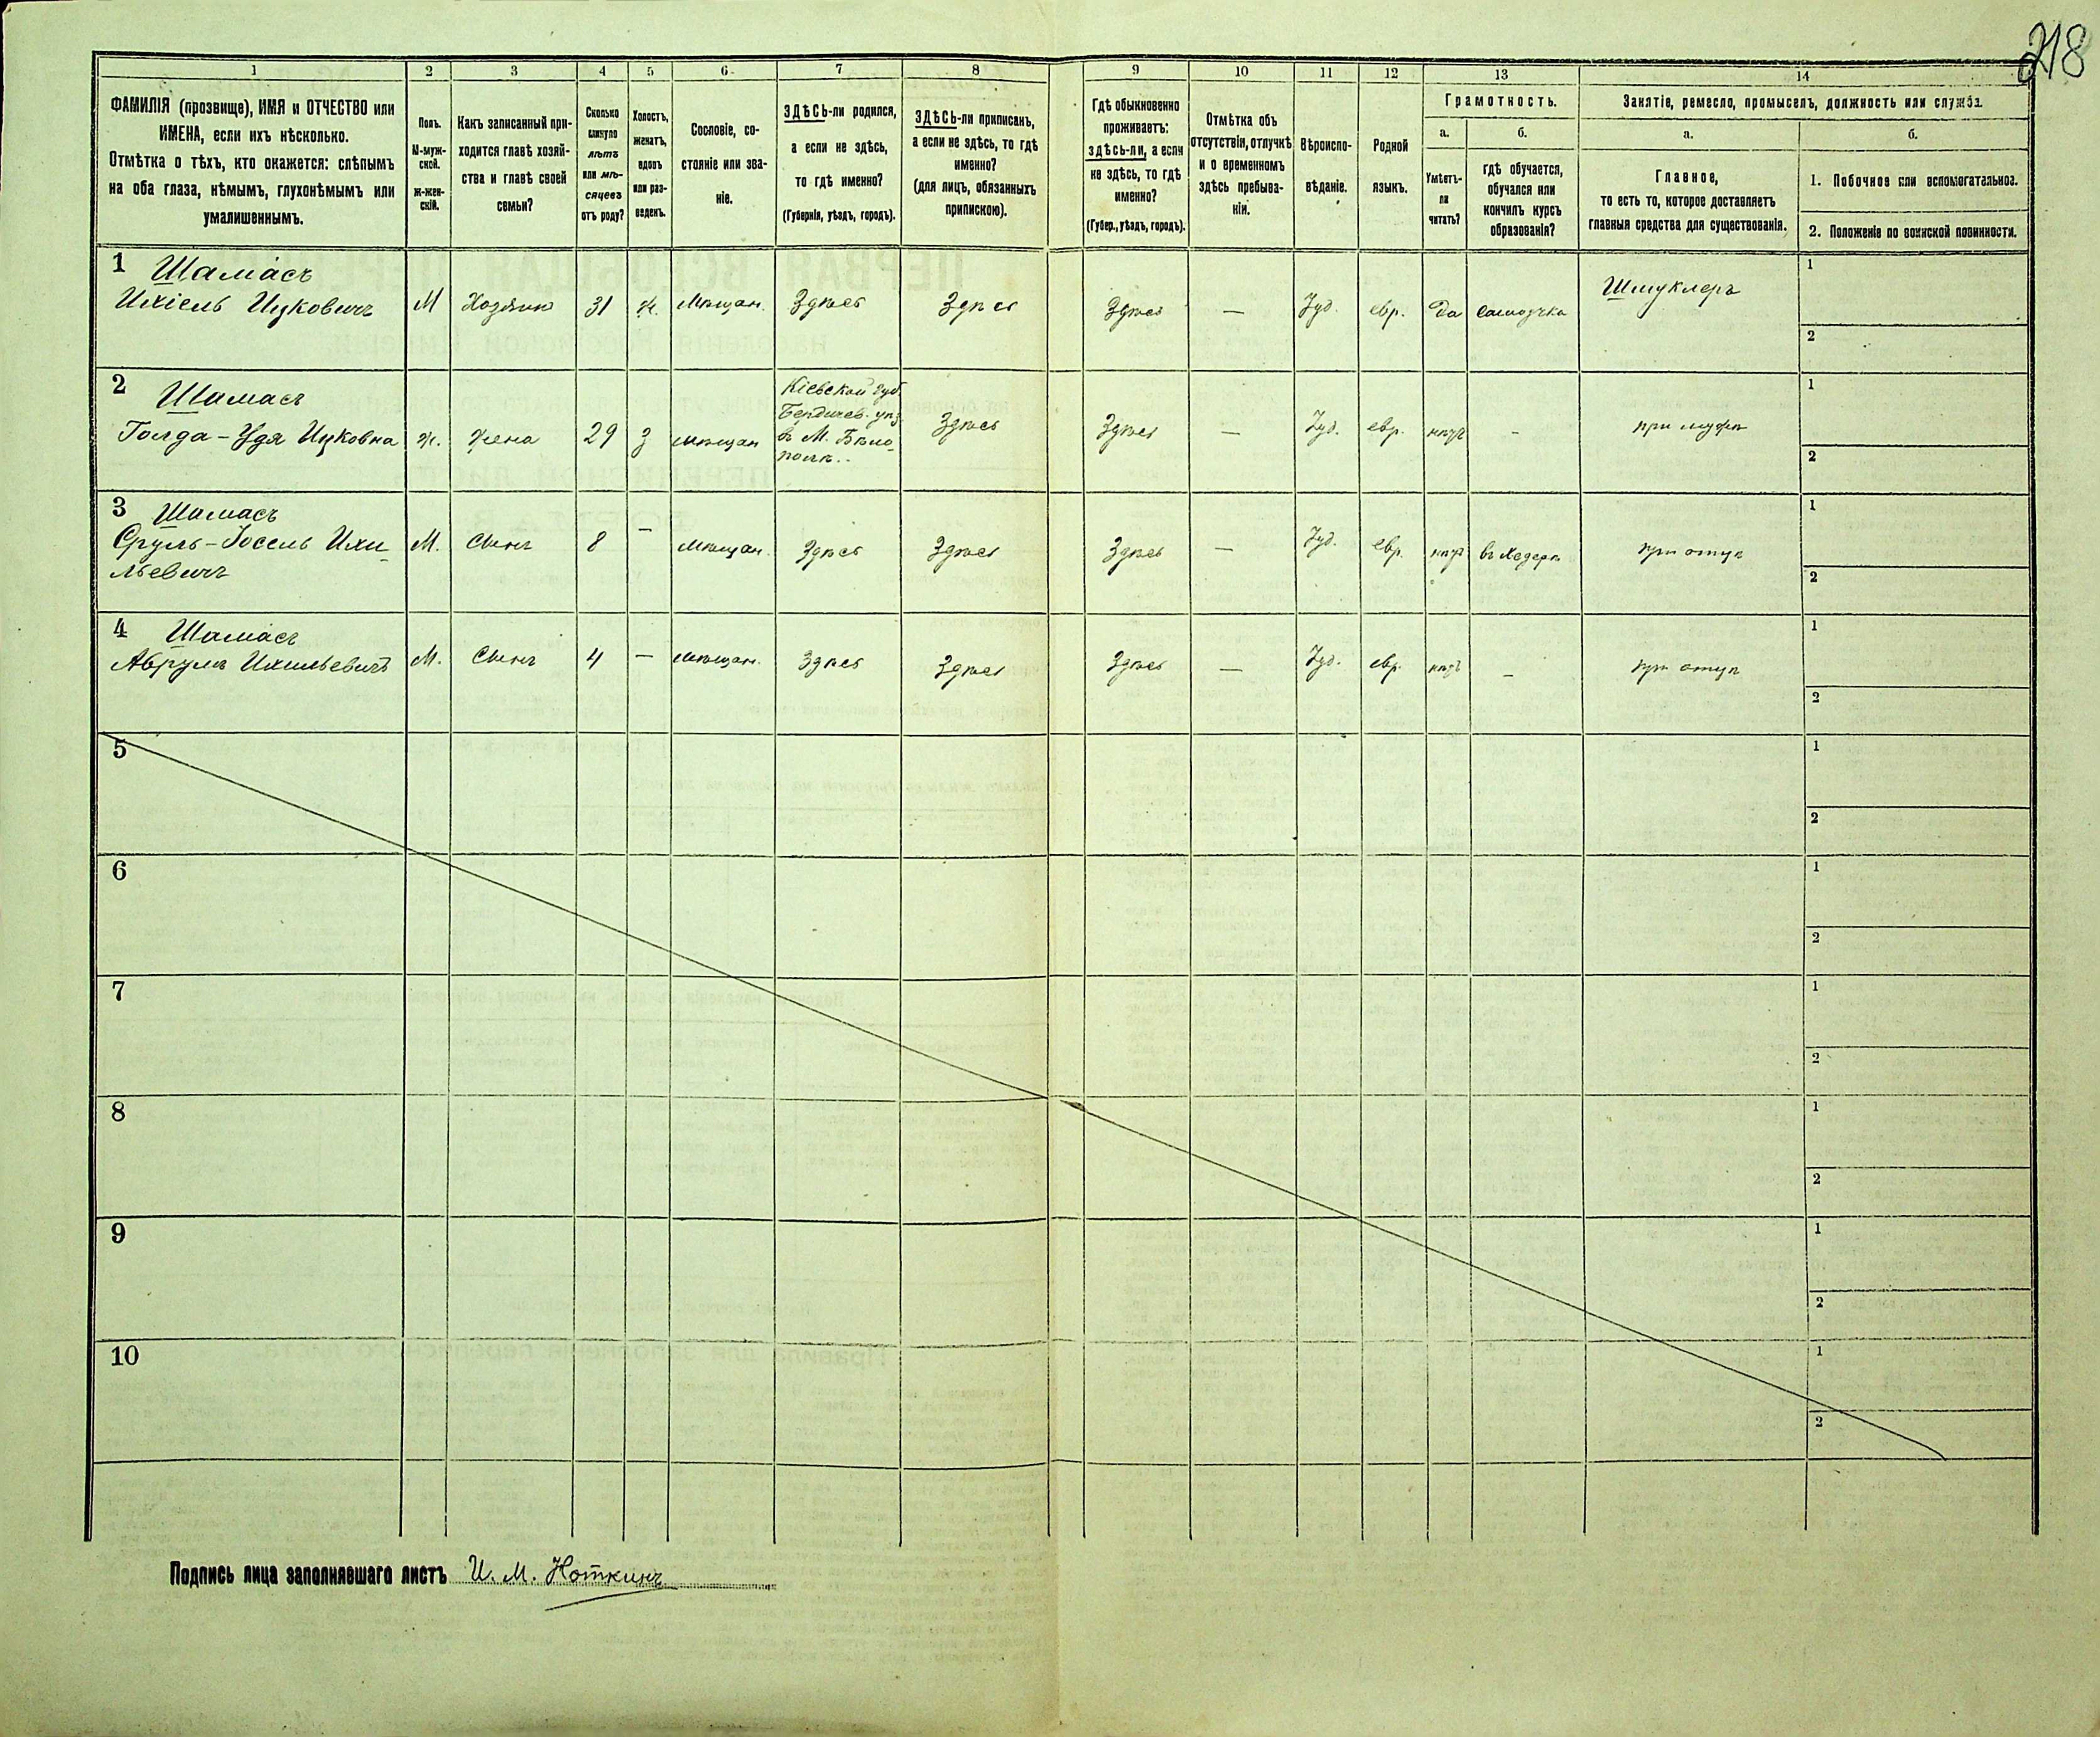 218
1 2 3 4 5 6 7 8 9 10 11 12 13 14
ФАМИЛІЯ (прозвище), ИМЯ и ОТЧЕСТВО или
ИМЕНА, если ихъ нѣсколько.
Отмѣтка о тѣхъ, кто окажется: слѣпымъ
на оба глаза, нѣмымъ, глухонѣмымъ или
умалишеннымъ.
Полъ.
М-муж-
ской.
ж-жен-
скій.
Какъ записанный при-
ходится главѣ хозяй-
ства и главѣ своей
семьи?
Сколько
минуло
лѣтъ
или мѣ-
сяцевъ
отъ роду?
Холостъ,
женатъ,
вдовъ
или раз-
веденъ.
Сословіе, со-
стояніе или зва-
ніе.
ЗДѢСЬ-ли родился,
а если не здѣсь,
то гдѣ именно?
(Губернія, уѣздъ, городъ).
ЗДѢСЬ-ли приписанъ,
а если не здѣсь, то гдѣ
именно?
(для лицъ, обязанныхъ
припискою).
Гдѣ обыкновенно
проживаетъ:
здѣсь-ли, а если
не здѣсь, то гдѣ
именно?
(Губер., уѣздъ, городъ).
Отмѣтка объ
отсутствіи, отлучкѣ
и о временномъ
здѣсь пребыва-
ніи.
Вѣроиспо-
вѣданіе.
Родной
языкъ.
Грамотность.
а.
Умѣетъ-
ли
читать?
б.
гдѣ обучается,
обучался или
кончилъ курсъ
образованія?
Занятіе, ремесло, промыселъ, должность или служба.
а.
Главное,
то есть то, которое доставляетъ
главныя средства для существованія.
б.
1. Побочное или вспомогательное.
2. Положеніе по воинской повинности.
1 Шамасъ
Ихіель Ицковичъ М Хозяинъ 31 ж. Мѣщан. Здѣсь Здѣсь Здѣсь — Іуд. евр. да самоучка Шмуклеръ
1
2
2 Шамасъ
Голда-Удя Ицковна ж. жена 29 з мѣщан
Кіевской губ.
Бердичев. уѣз
в М. Бѣло-
полѣ..
Здѣсь Здѣсь — Іуд. евр. нѣтъ - при мужѣ
1
2
3 Шамасъ
Сруль-Іосель Ихи-
льевичъ
М. Сынъ 8 — мѣщан. Здѣсь Здѣсь Здѣсь — Іуд. евр. нѣтъ въ Хедерѣ при отцѣ
1
2
4 Шамасъ
Абрумъ Ихильевичъ М. Сынъ 4 — мѣщан. Здѣсь Здѣсь Здѣсь — Іуд. евр. нѣтъ - при отцѣ
1
2
5
1
2
6
1
2
7
1
2
8
1
2
9
1
2
10
1
2
Подпись лица заполнявшаго листъ И. М. Ноткинъ